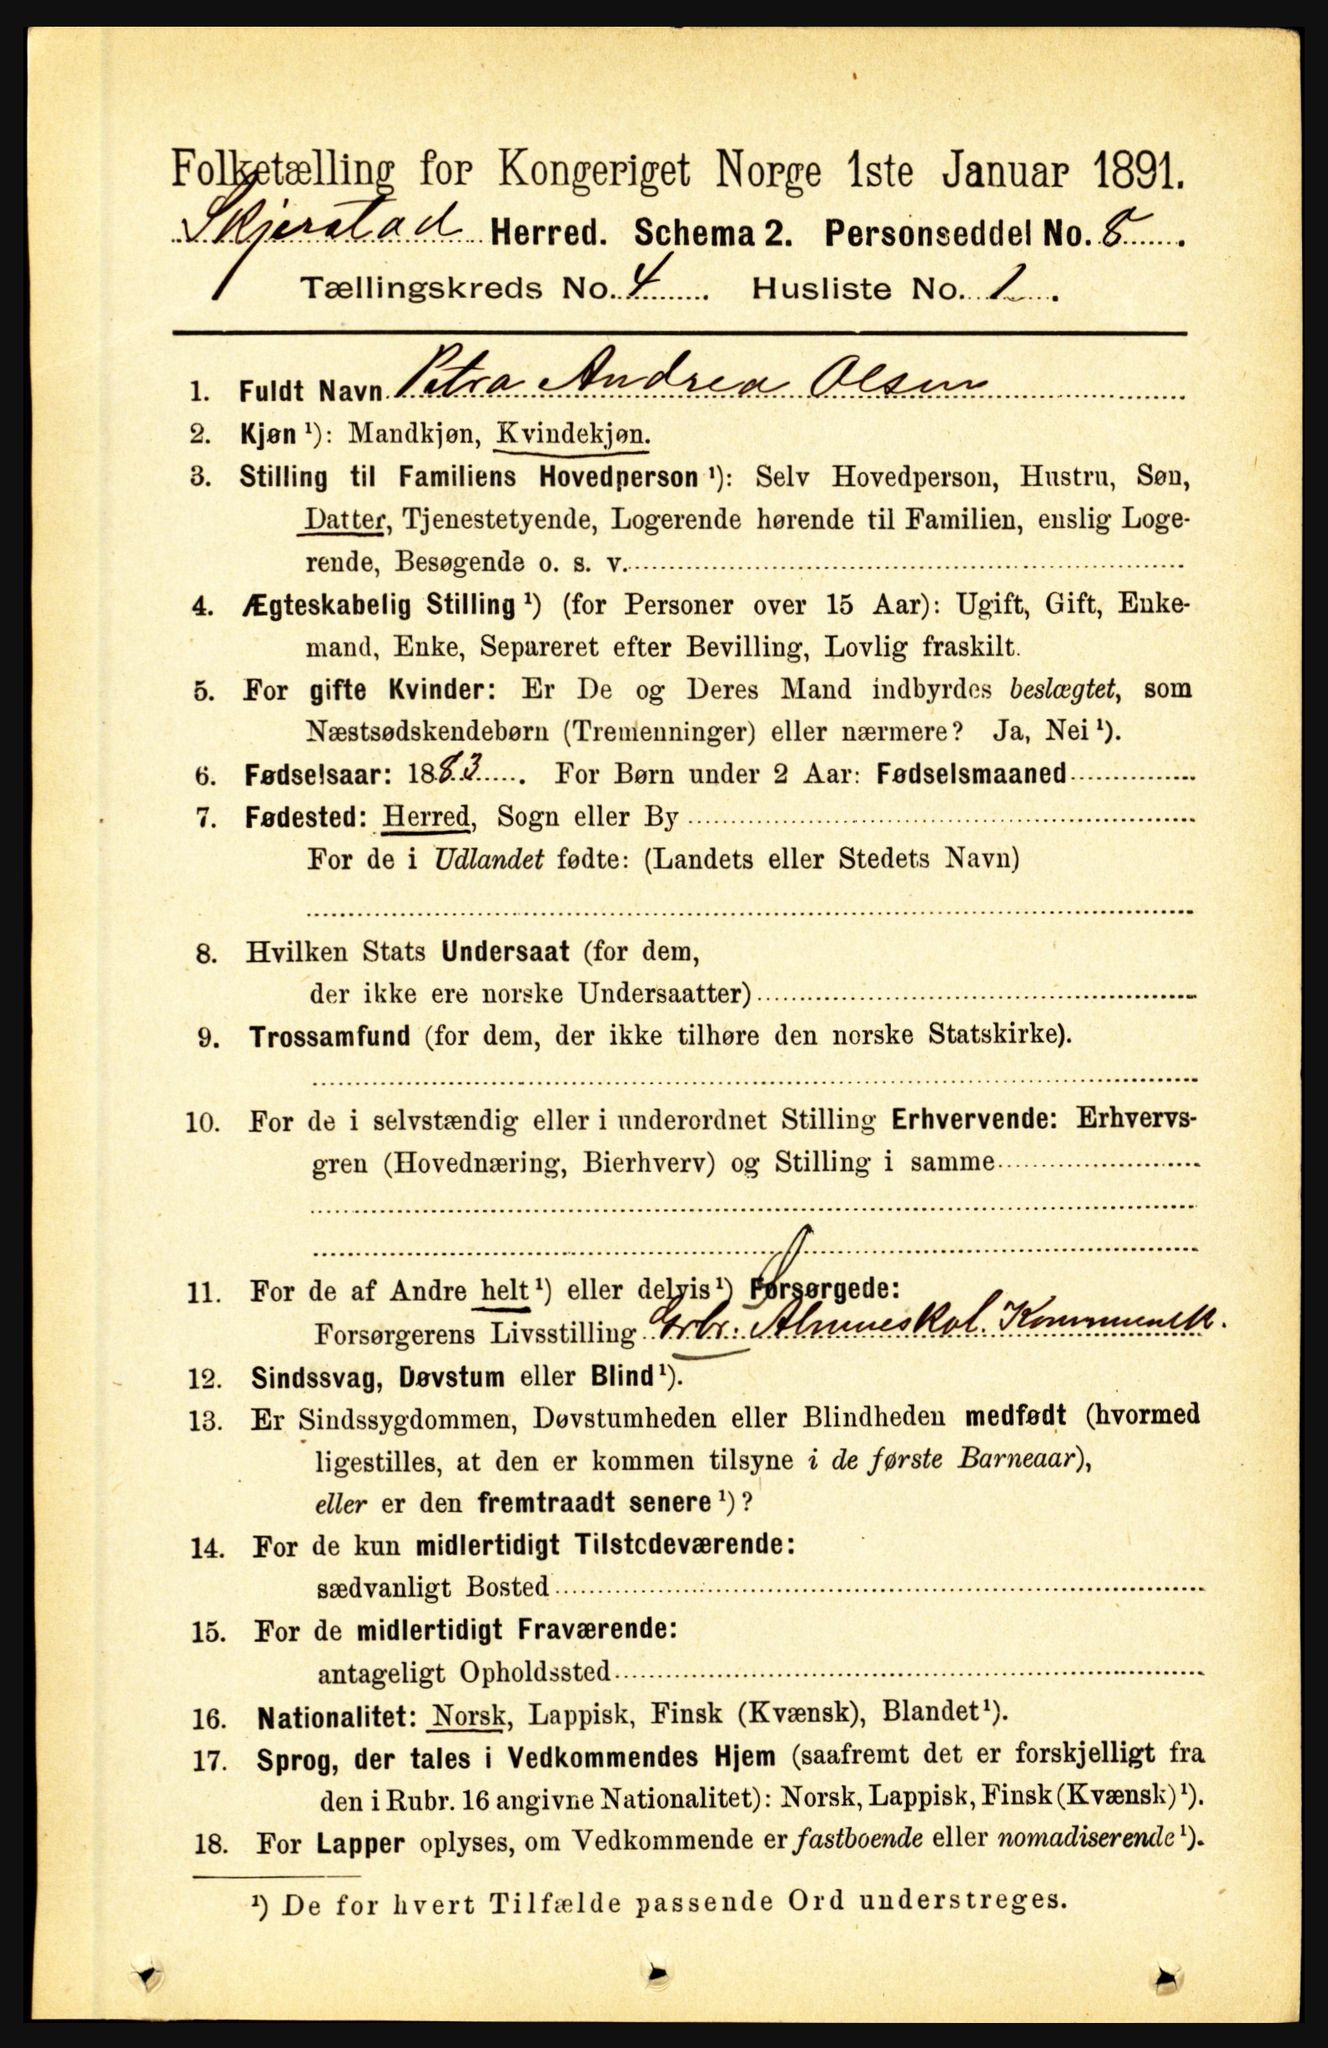 Folketælling for Kongeriget Norge 1ste Januar 1891.
Skjerstad Herred. Schema 2. Personseddel No. 8.
Tællingskreds No. 4. Husliste No. 1.
1. Fuldt Navn Petra Andrea Olsen
2. Kjøn ¹): Mandkjøn, Kvindekjøn.
3. Stilling til Familiens Hovedperson ¹): Selv Hovedperson, Hustru, Søn,
Datter, Tjenestetyende, Logerende hørende til Familien, enslig Loge-
rende, Besøgende o. s. v.
4. Ægteskabelig Stilling ¹) (for Personer over 15 Aar): Ugift, Gift, Enke-
mand, Enke, Separeret efter Bevilling, Lovlig fraskilt.
5. For gifte Kvinder: Er De og Deres Mand indbyrdes beslægtet, som
Næstsødskendebørn (Tremenninger) eller nærmere? Ja, Nei ¹).
6. Fødselsaar: 1883. For Børn under 2 Aar: Fødselsmaaned
7. Fødested: Herred, Sogn eller By
For de i Udlandet fødte: (Landets eller Stedets Navn)
8. Hvilken Stats Undersaat (for dem,
der ikke ere norske Undersaatter)
9. Trossamfund (for dem, der ikke tilhøre den norske Statskirke).
10. For de i selvstændig eller i underordnet Stilling Erhvervende: Erhvervs-
gren (Hovednæring, Bierhverv) og Stilling i samme
11. For de af Andre helt ¹) eller delvis ¹) Forsørgede:
Forsørgerens Livsstilling Grbr. Almueskol. Kommunek.
12. Sindssvag, Døvstum eller Blind ¹).
13. Er Sindssygdommen, Døvstumheden eller Blindheden medfødt (hvormed
ligestilles, at den er kommen tilsyne i de første Barneaar),
eller er den fremtraadt senere ¹)?
14. For de kun midlertidigt Tilstedeværende:
sædvanligt Bosted
15. For de midlertidigt Fraværende:
antageligt Opholdssted
16. Nationalitet: Norsk, Lappisk, Finsk (Kvænsk), Blandet ¹).
17. Sprog, der tales i Vedkommendes Hjem (saafremt det er forskjelligt fra
den i Rubr. 16 angivne Nationalitet): Norsk, Lappisk, Finsk (Kvænsk) ¹).
18. For Lapper oplyses, om Vedkommende er fastboende eller nomadiserende ¹).
¹) De for hvert Tilfælde passende Ord understreges.